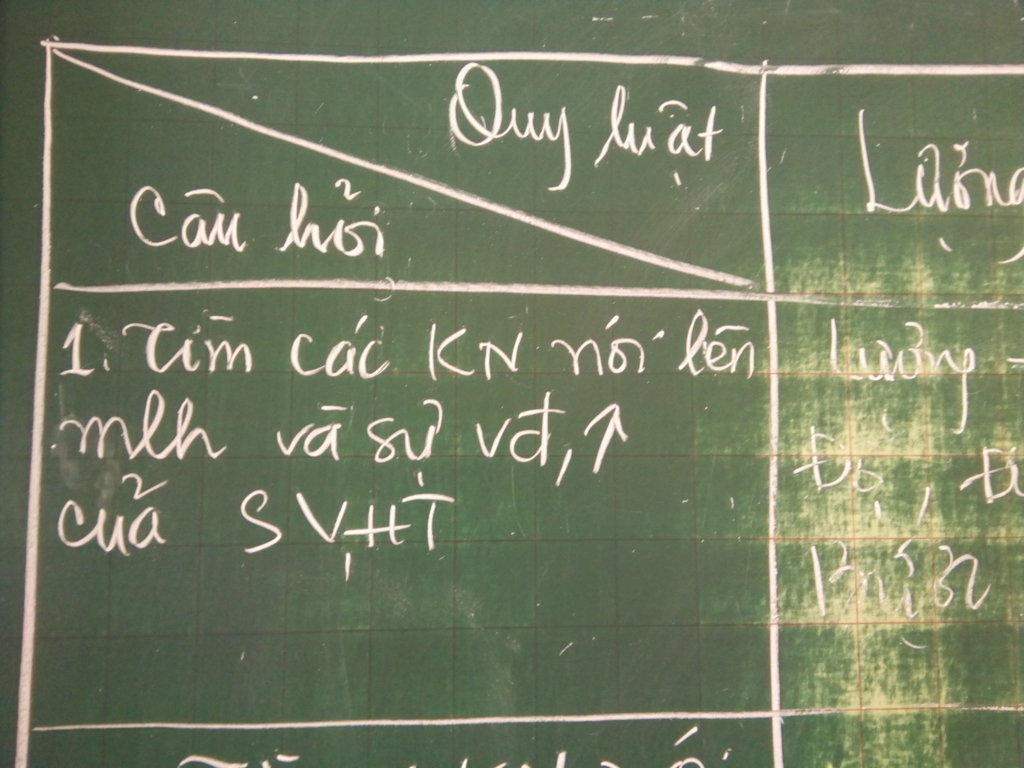 Quy luật
Câu hỏi
Lượng
1. Tìm các KN nói lên
mlh và sự vđ, ↑
của SV, HT
Lượng -
Độ, Đi